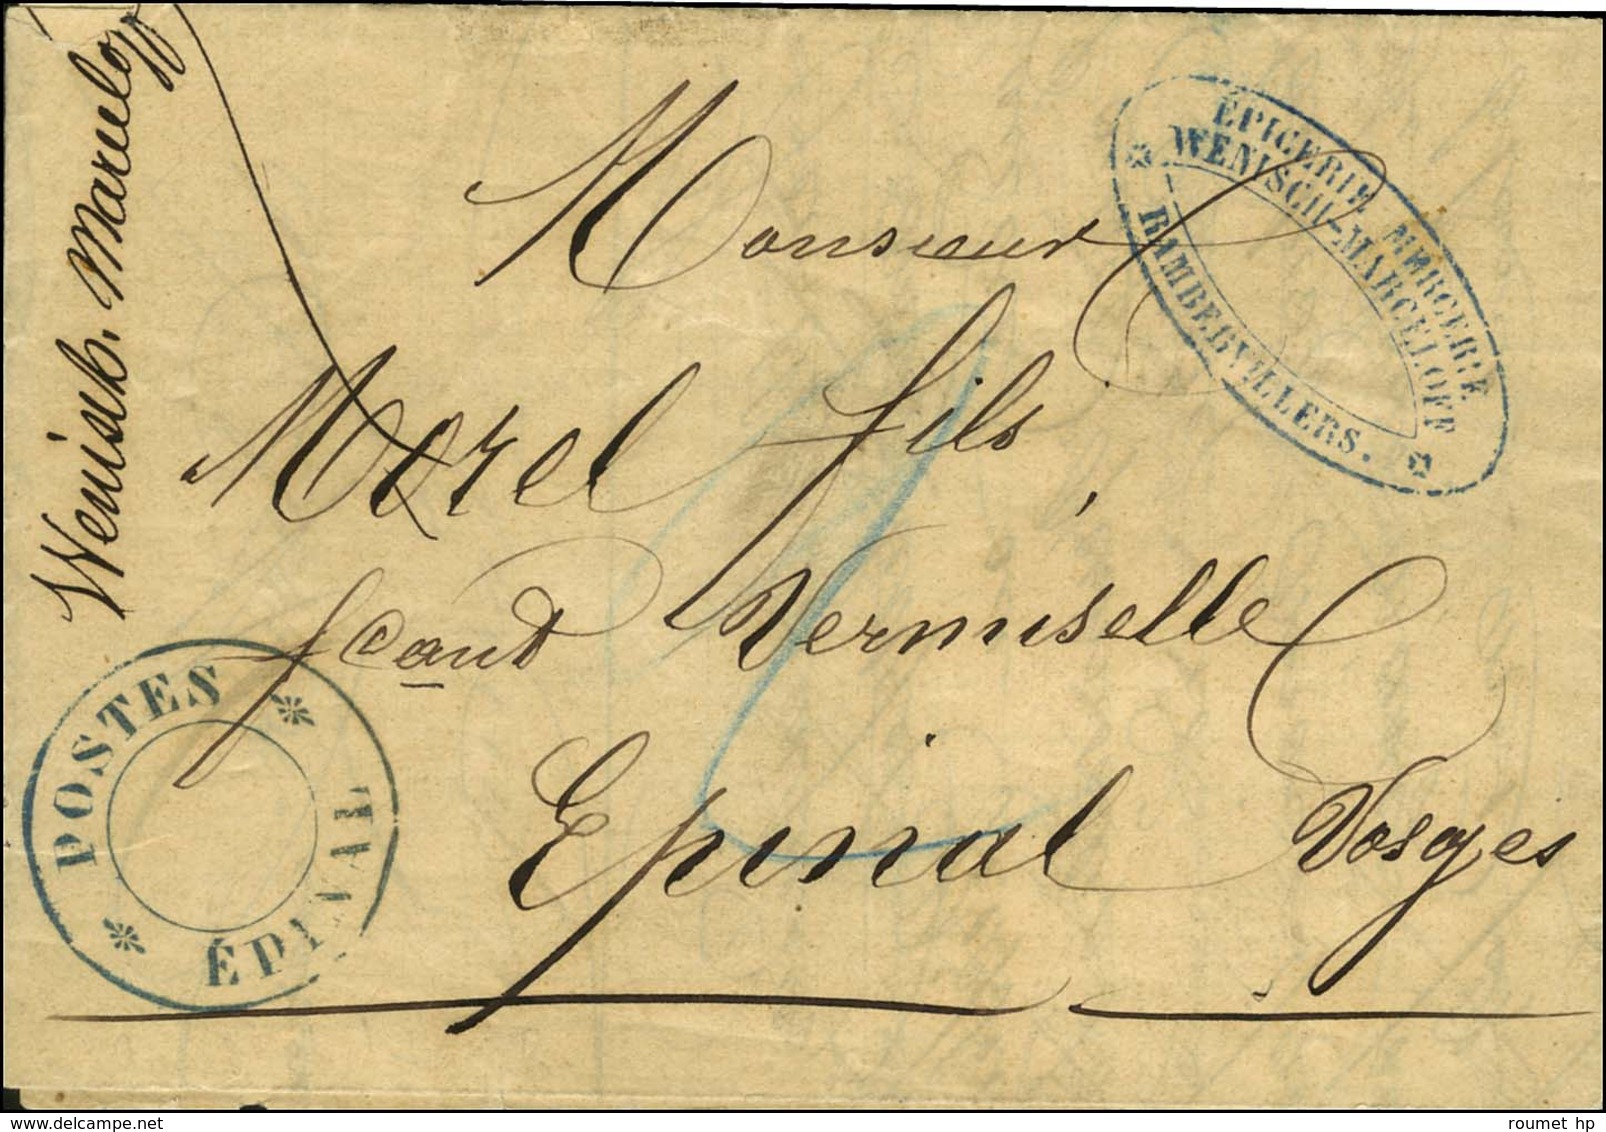 Wenisch. Marulo
ÉPICERIE MERCERIE
WENISCH-MARCELLOFF
RAMBERVILLERS.
Monsieur
Morel fils
fcant Vermiselle
Epinal Vosges
POSTES
ÉPINAL
roumet hp